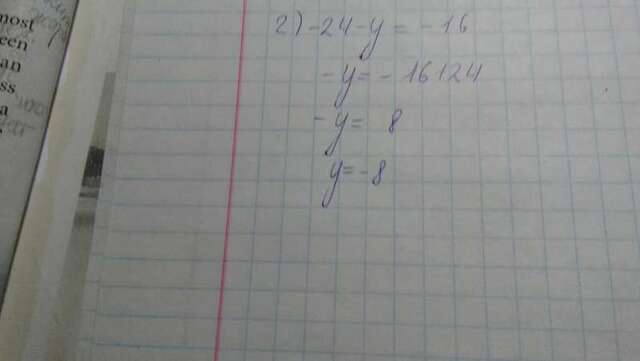 most
een
an
ss
a
2) -24 - y = -16
-y = -16+24
-y = 8
y = -8